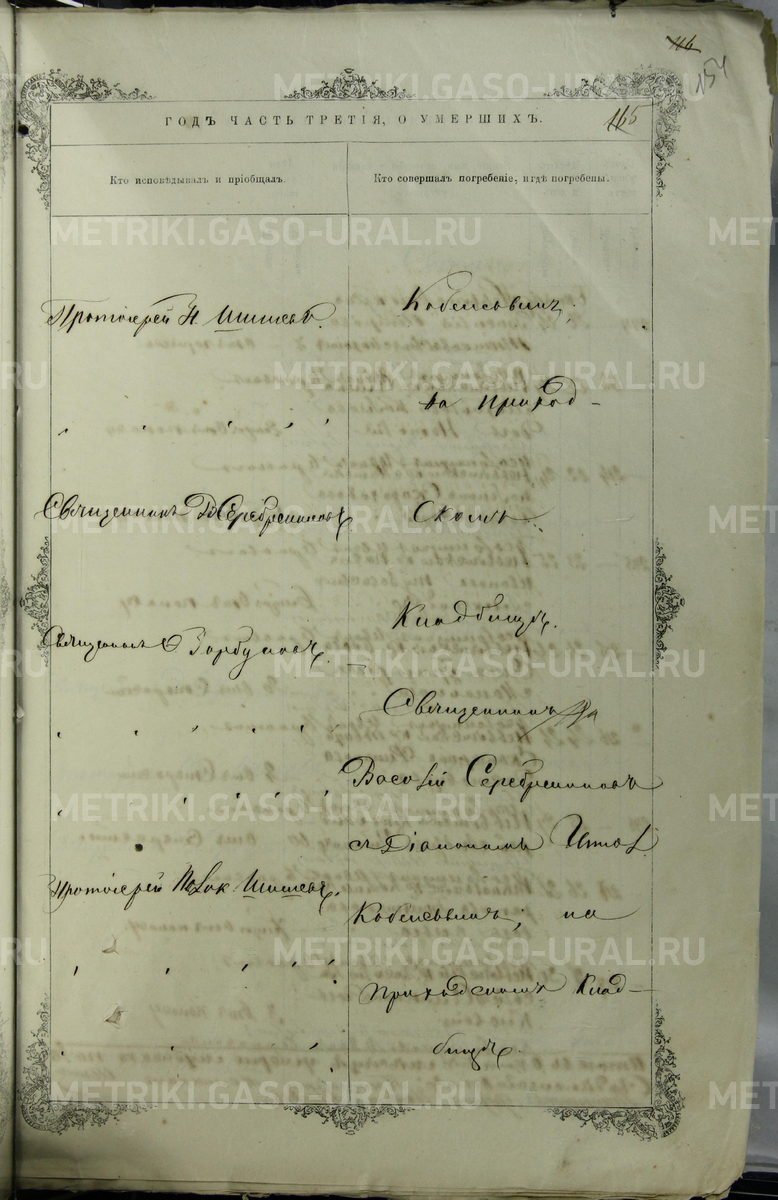 116
154
ГОДЪ ЧАСТЬ ТРЕТІЯ, О УМЕРШИХЪ.
165
Кто исповѣдывалъ и пріобщалъ.
Кто совершалъ погребеніе, и гдѣ погребены.
Протоіерей Н. Шишевъ.
на Приход-
Священникъ Серебренниковъ
Скомъ
Священникъ
Кладбищѣ.
Священникъ
Василій Серебренниковъ
съ Діакономъ
Протоіерей Шишевъ.
на
Приходскомъ Клад-
бищѣ.
METRIKI.GASO-URAL.RU